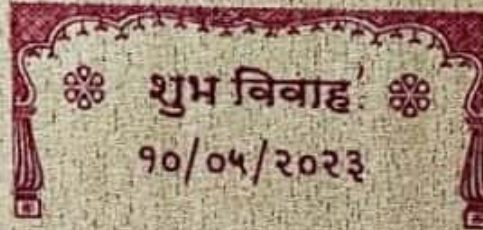 शुभ विवाह
१०/०५/२०२३